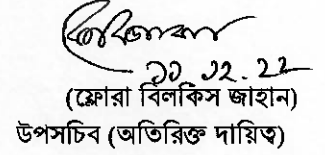 ১১.১২.২২
(ফ্লোরা বিলকিস জাহান)
উপসচিব (অতিরিক্ত দায়িত্ব)